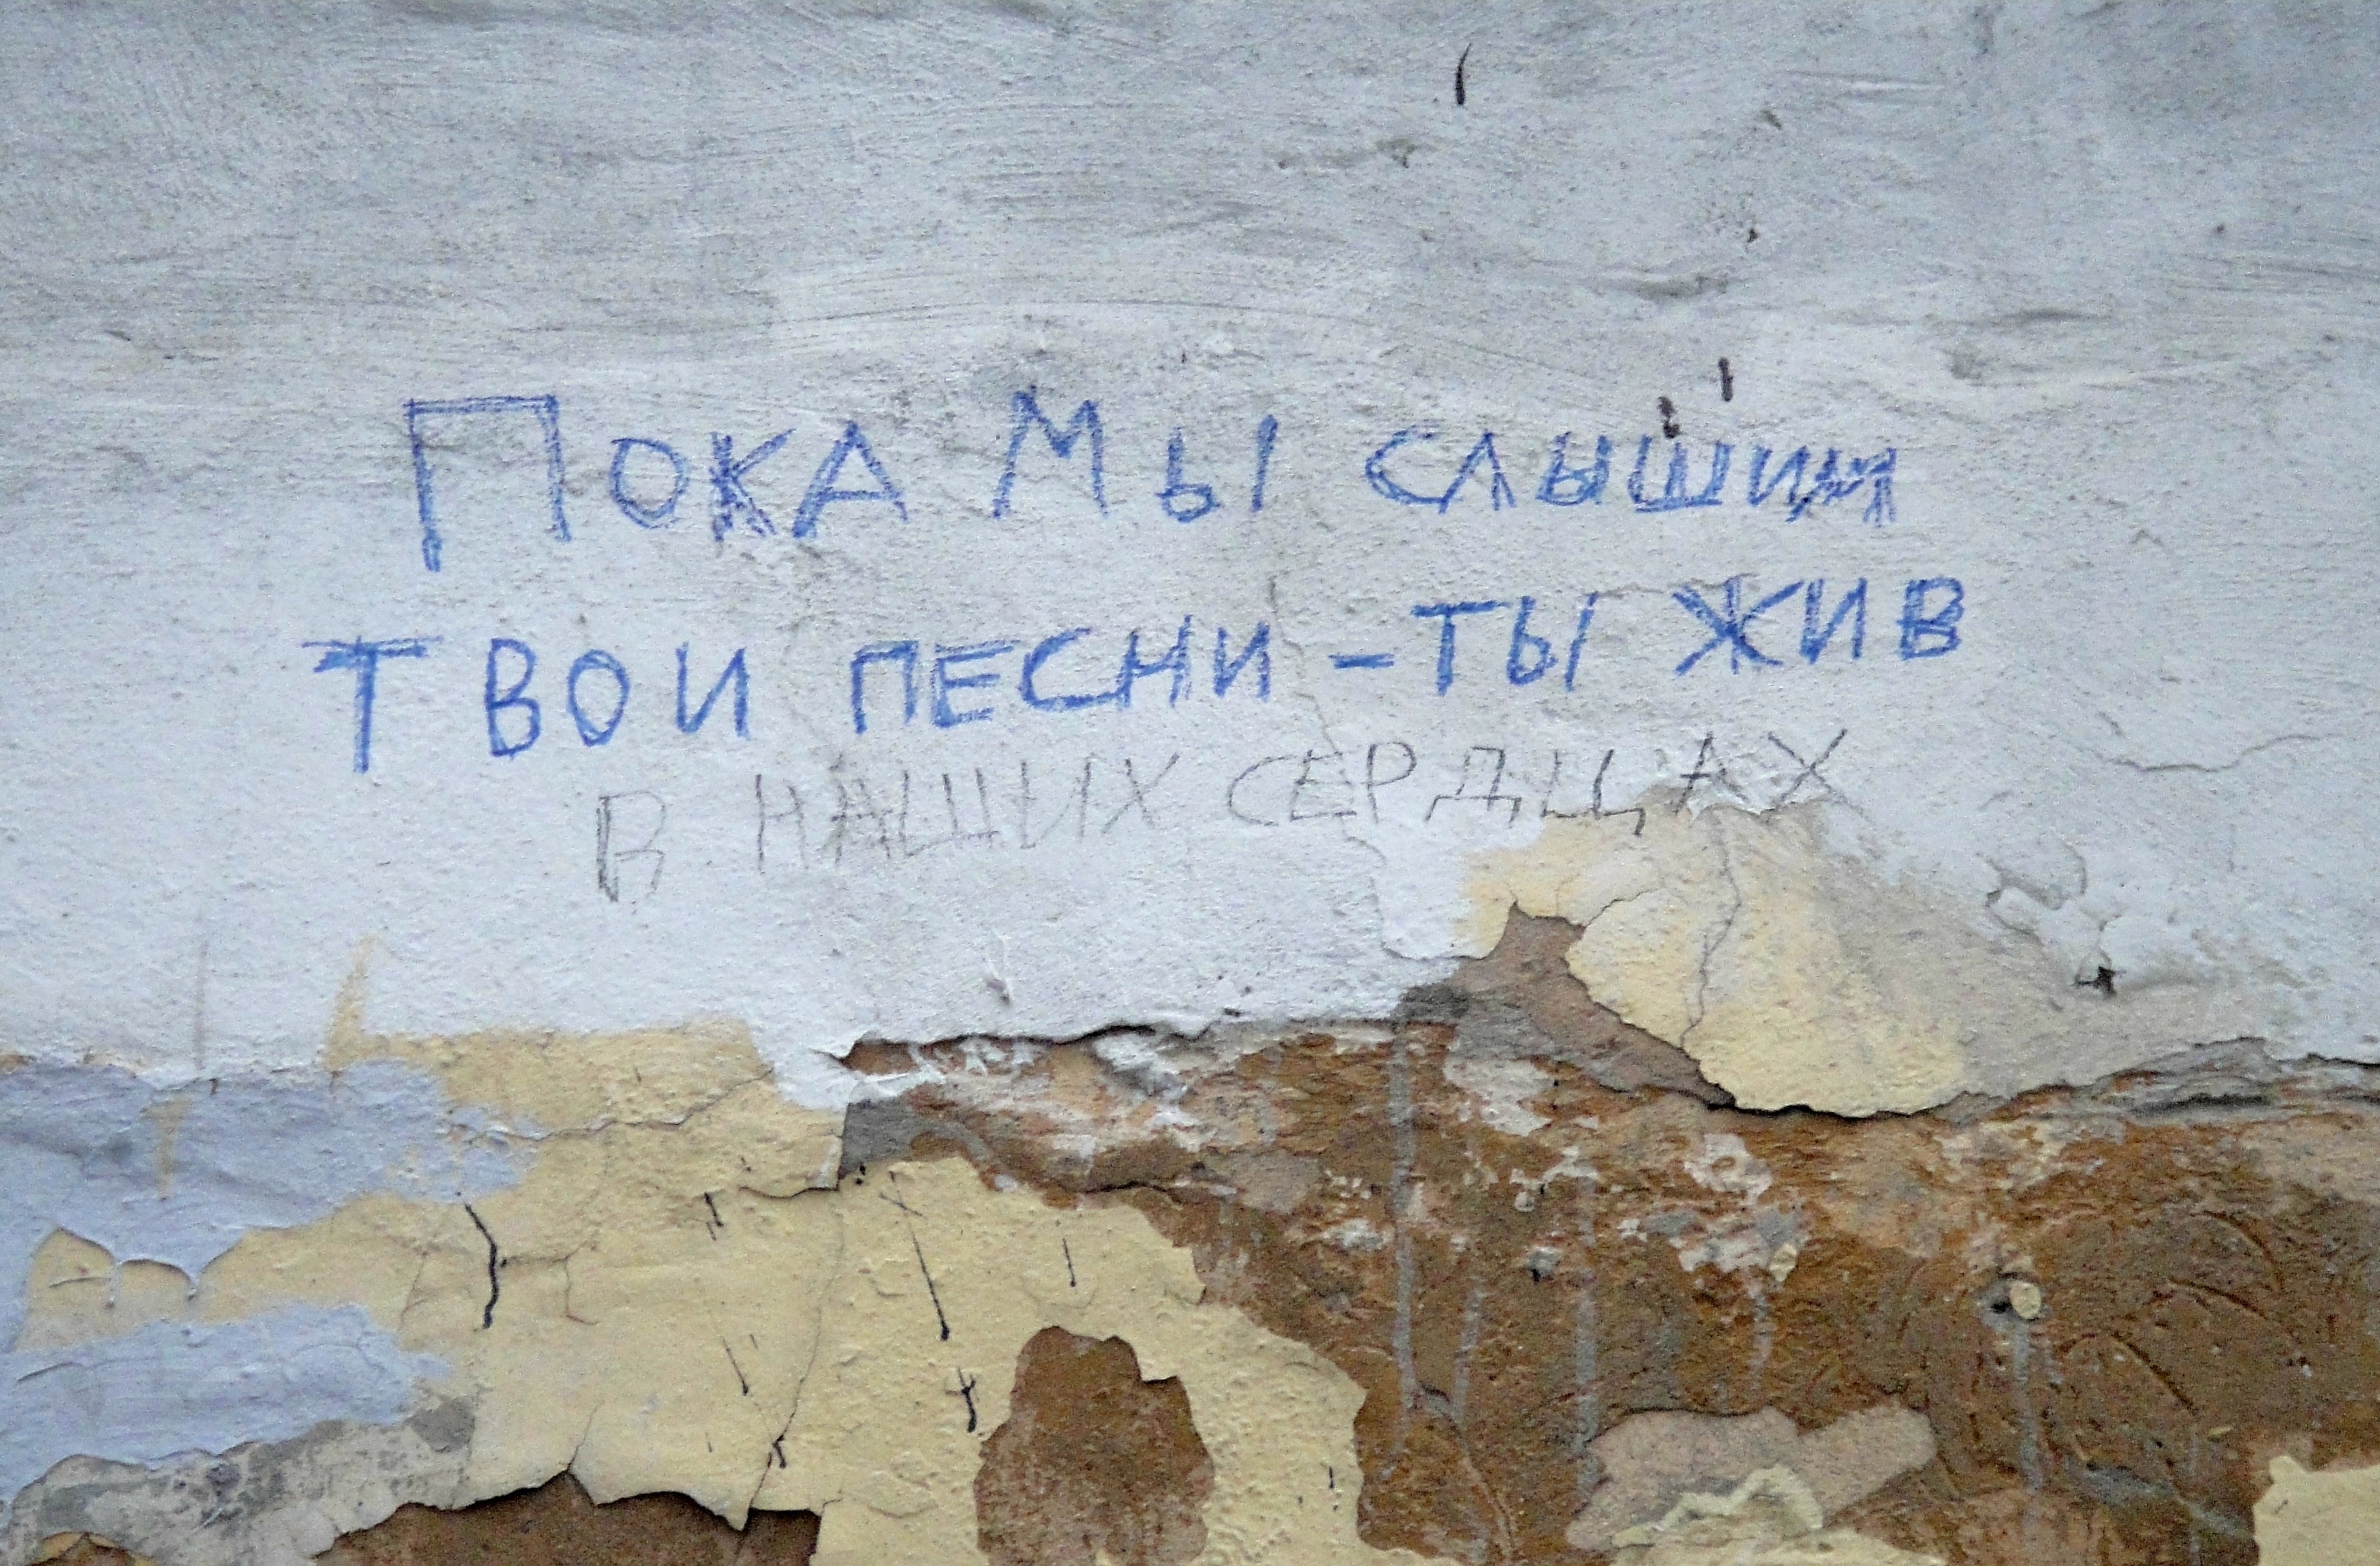 Пока Мы слышим
твои песни - ты жив
в наших сердцах